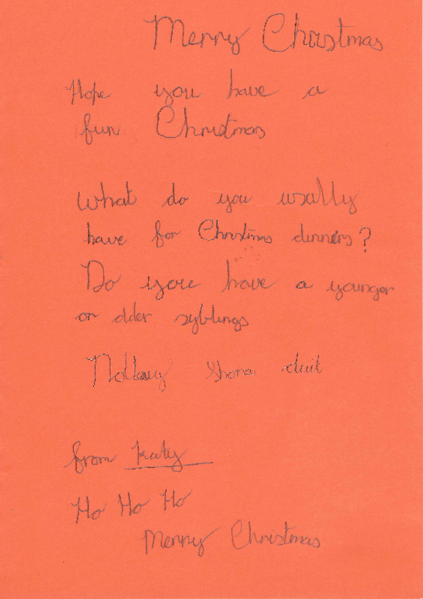 Merry Christmas
Hope you have a
fun Christmas
What do you usally
have for Christmas dinners?
Do you have a younger
or older syblings
Nollaig shona duit
from Katy
Ho Ho Ho
Merry Christmas